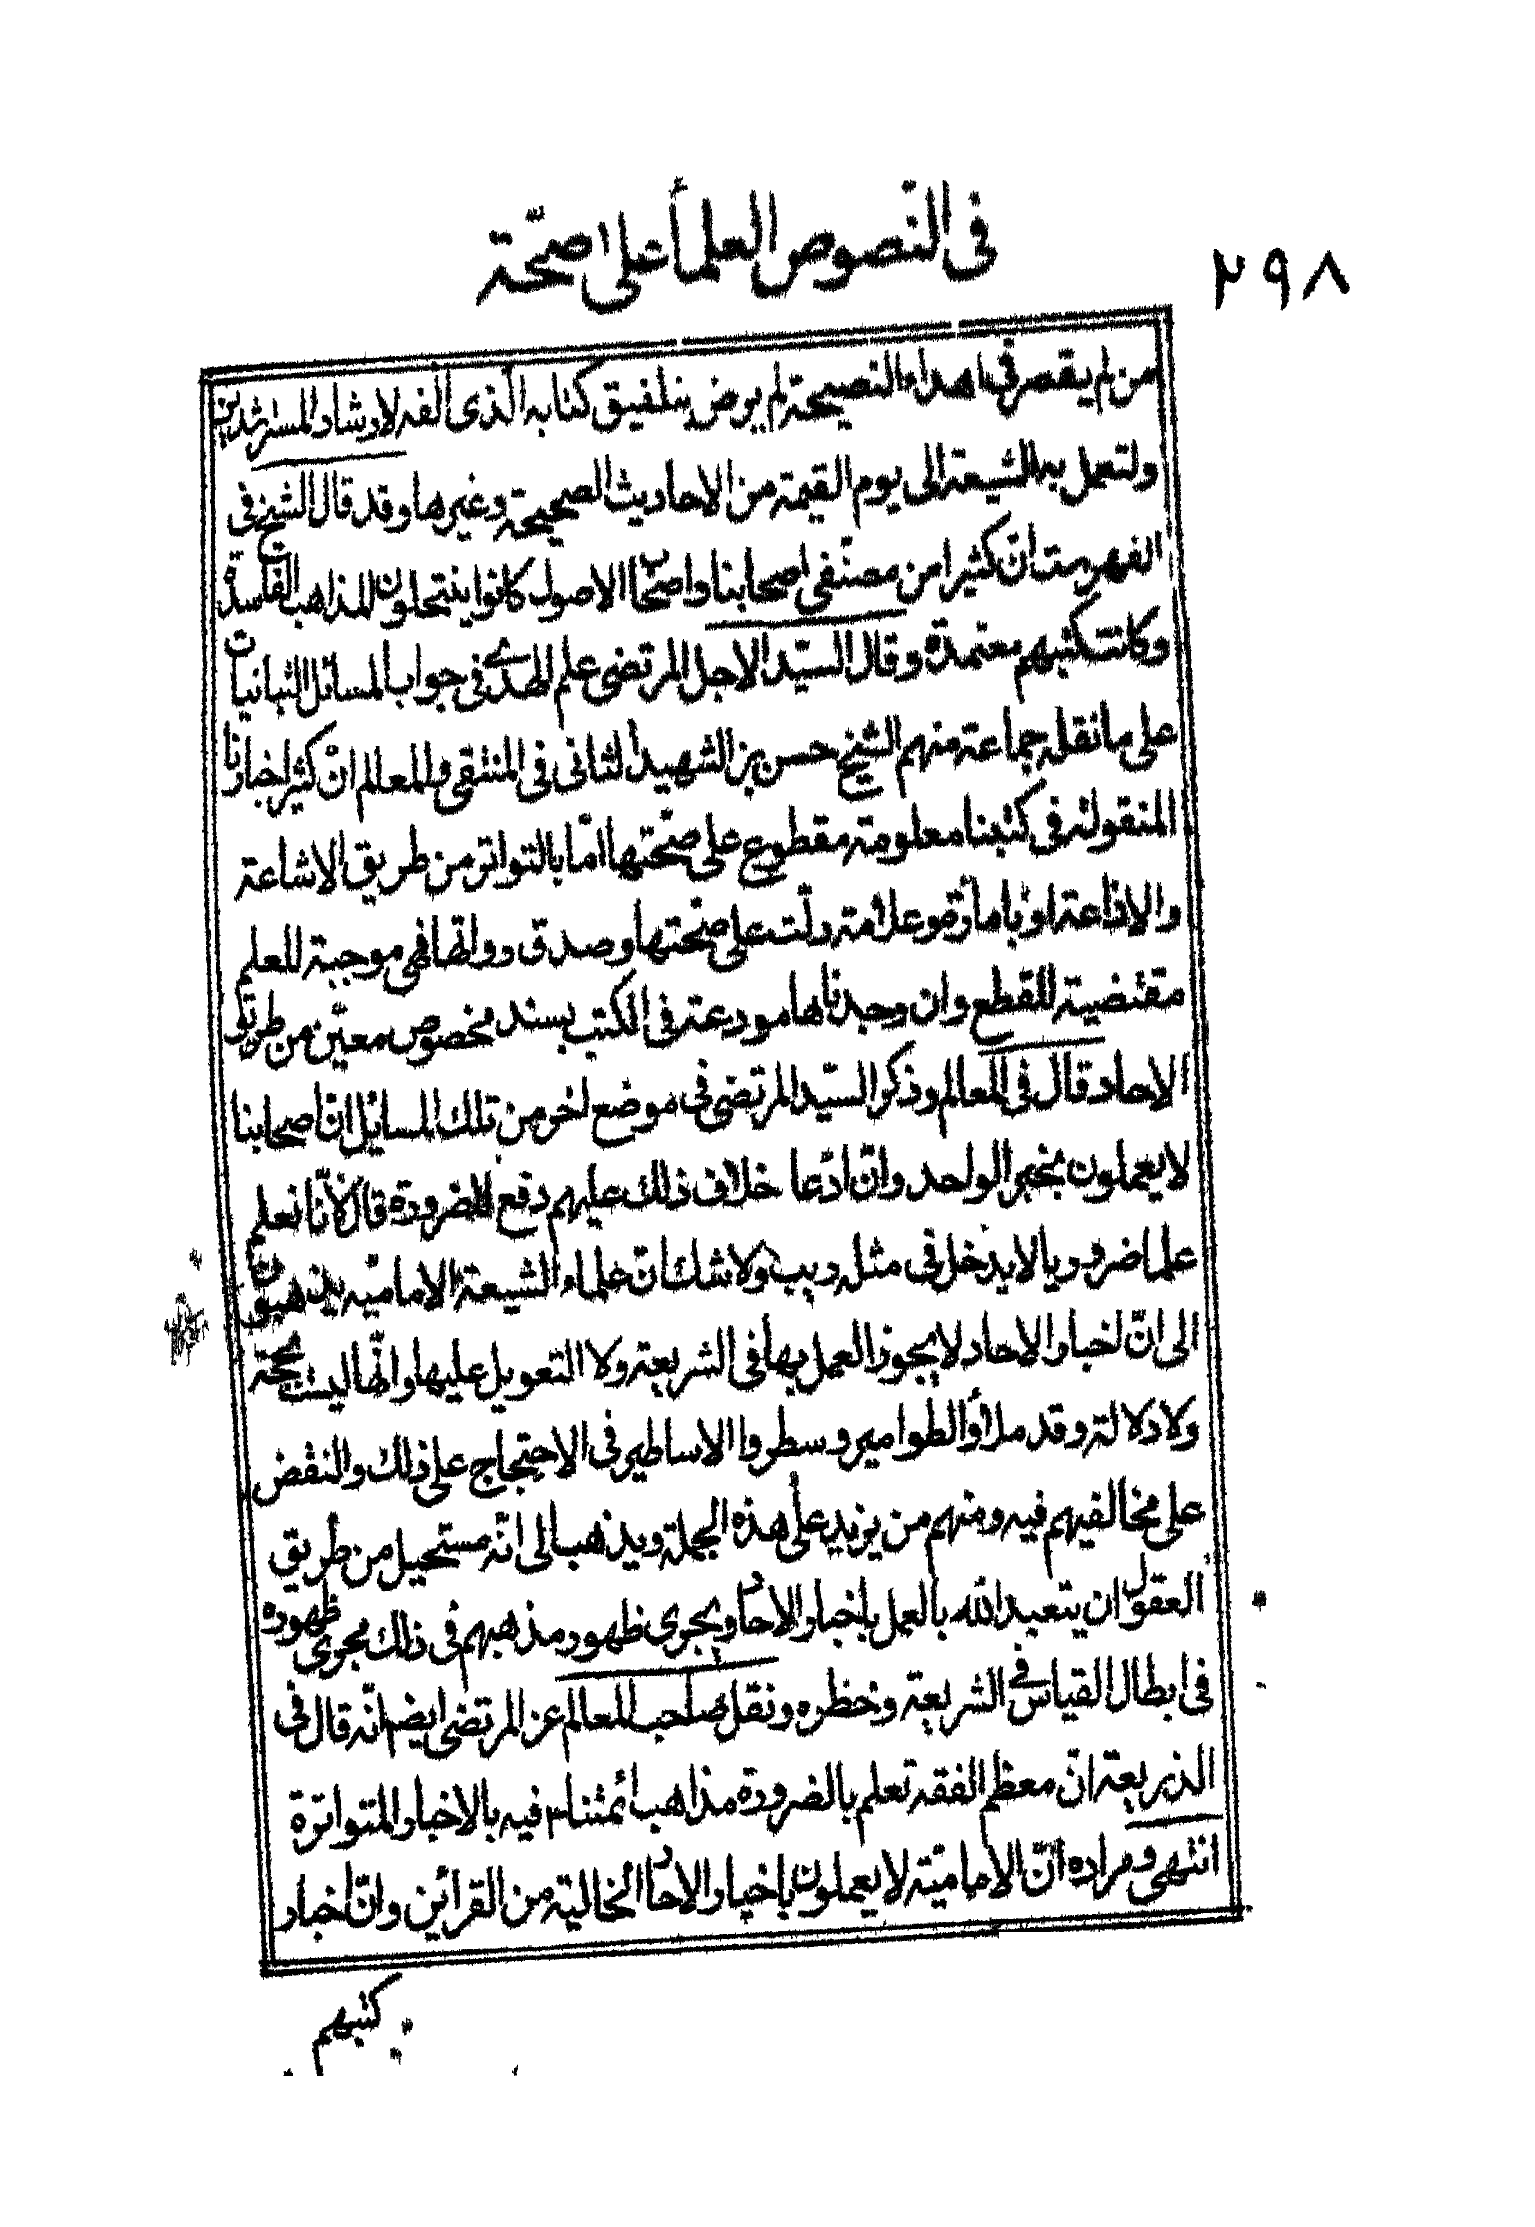 ٢٩٨
فى النّصوص العلمأ على صحّة
من لم يقصر فى اهداء النصيحة لم يرض بتلفيق كتابه الّذى الفه لارشاد المسترشدين
ولتعمل به الشيعة الى يوم القيمة من الاحاديث الصحيحة وغيرها وقد قال الشيخ فى
الفهرست انّ كثيرا من مصنّفى اصحابنا واصحاب الاصول كانوا ينتحلون المذاهب الفاسدة
وكانت كتبهم معتمدة وقال السيّد الاجل المرتضى علم الهدى فى جواب المسائل التبانيات
على ما نقله جماعة منهم الشيخ حسن بن الشهيد الثانى فى المنتقى والمعالم انّ كثير اخبارنا
المنقولة فى كتبنا معلومة مقطوع على صحّتها امّا بالتواتر من طريق الاشاعة
والاذاعة او بامارة وعلامة دلّت على صحّتها وصدق رواتها فهى موجبة للعلم
مقتضية للقطع وان وجدناها مودعة فى الكتب بسند مخصوص معيّن من طريق
الاحاد قال فى المعالم وذكر السيّد المرتضى فى موضع اخر من تلك المسائل انّ اصحابنا
لا يعملون بخبر الواحد وانّ ادّعا خلاف ذلك عليهم دفع للضرورة قال لانّا نعلم
علما ضروريا لا يدخل فى مثله ريب ولا شك انّ علماء الشيعة الاماميّه يذهبون
الى انّ اخبار الاحاد لا يجوز العمل بها فى الشريعة ولا التعويل عليها وانّها ليست بحجّة
ولا دلالة وقد ملأوا الطوامير وسطروا الاساطير فى الاحتجاج على ذلك والنقض
على مخالفيهم فيه ومنهم من يزيد على هذه الجملة ويذهب الى انّه مستحيل من طريق
العقول ان يتعبد الله بالعمل باخبار الاحاد ويجرى ظهور مذهبهم فى ذلك مجرى ظهوره
فى ابطال القياس فى الشريعة وخظره ونقل صاحب المعالم عن المرتضى ايضم انّه قال فى
الذريعة انّ معظم الفقه تعلم بالضرورة مذاهب ائمتنا فيه بالاخبار المتواترة
انتهى ومراده انّ الاماميّة لا يعملون باخبار الاحاد الخالية من القرائن وانّ اخبار
كتبهم